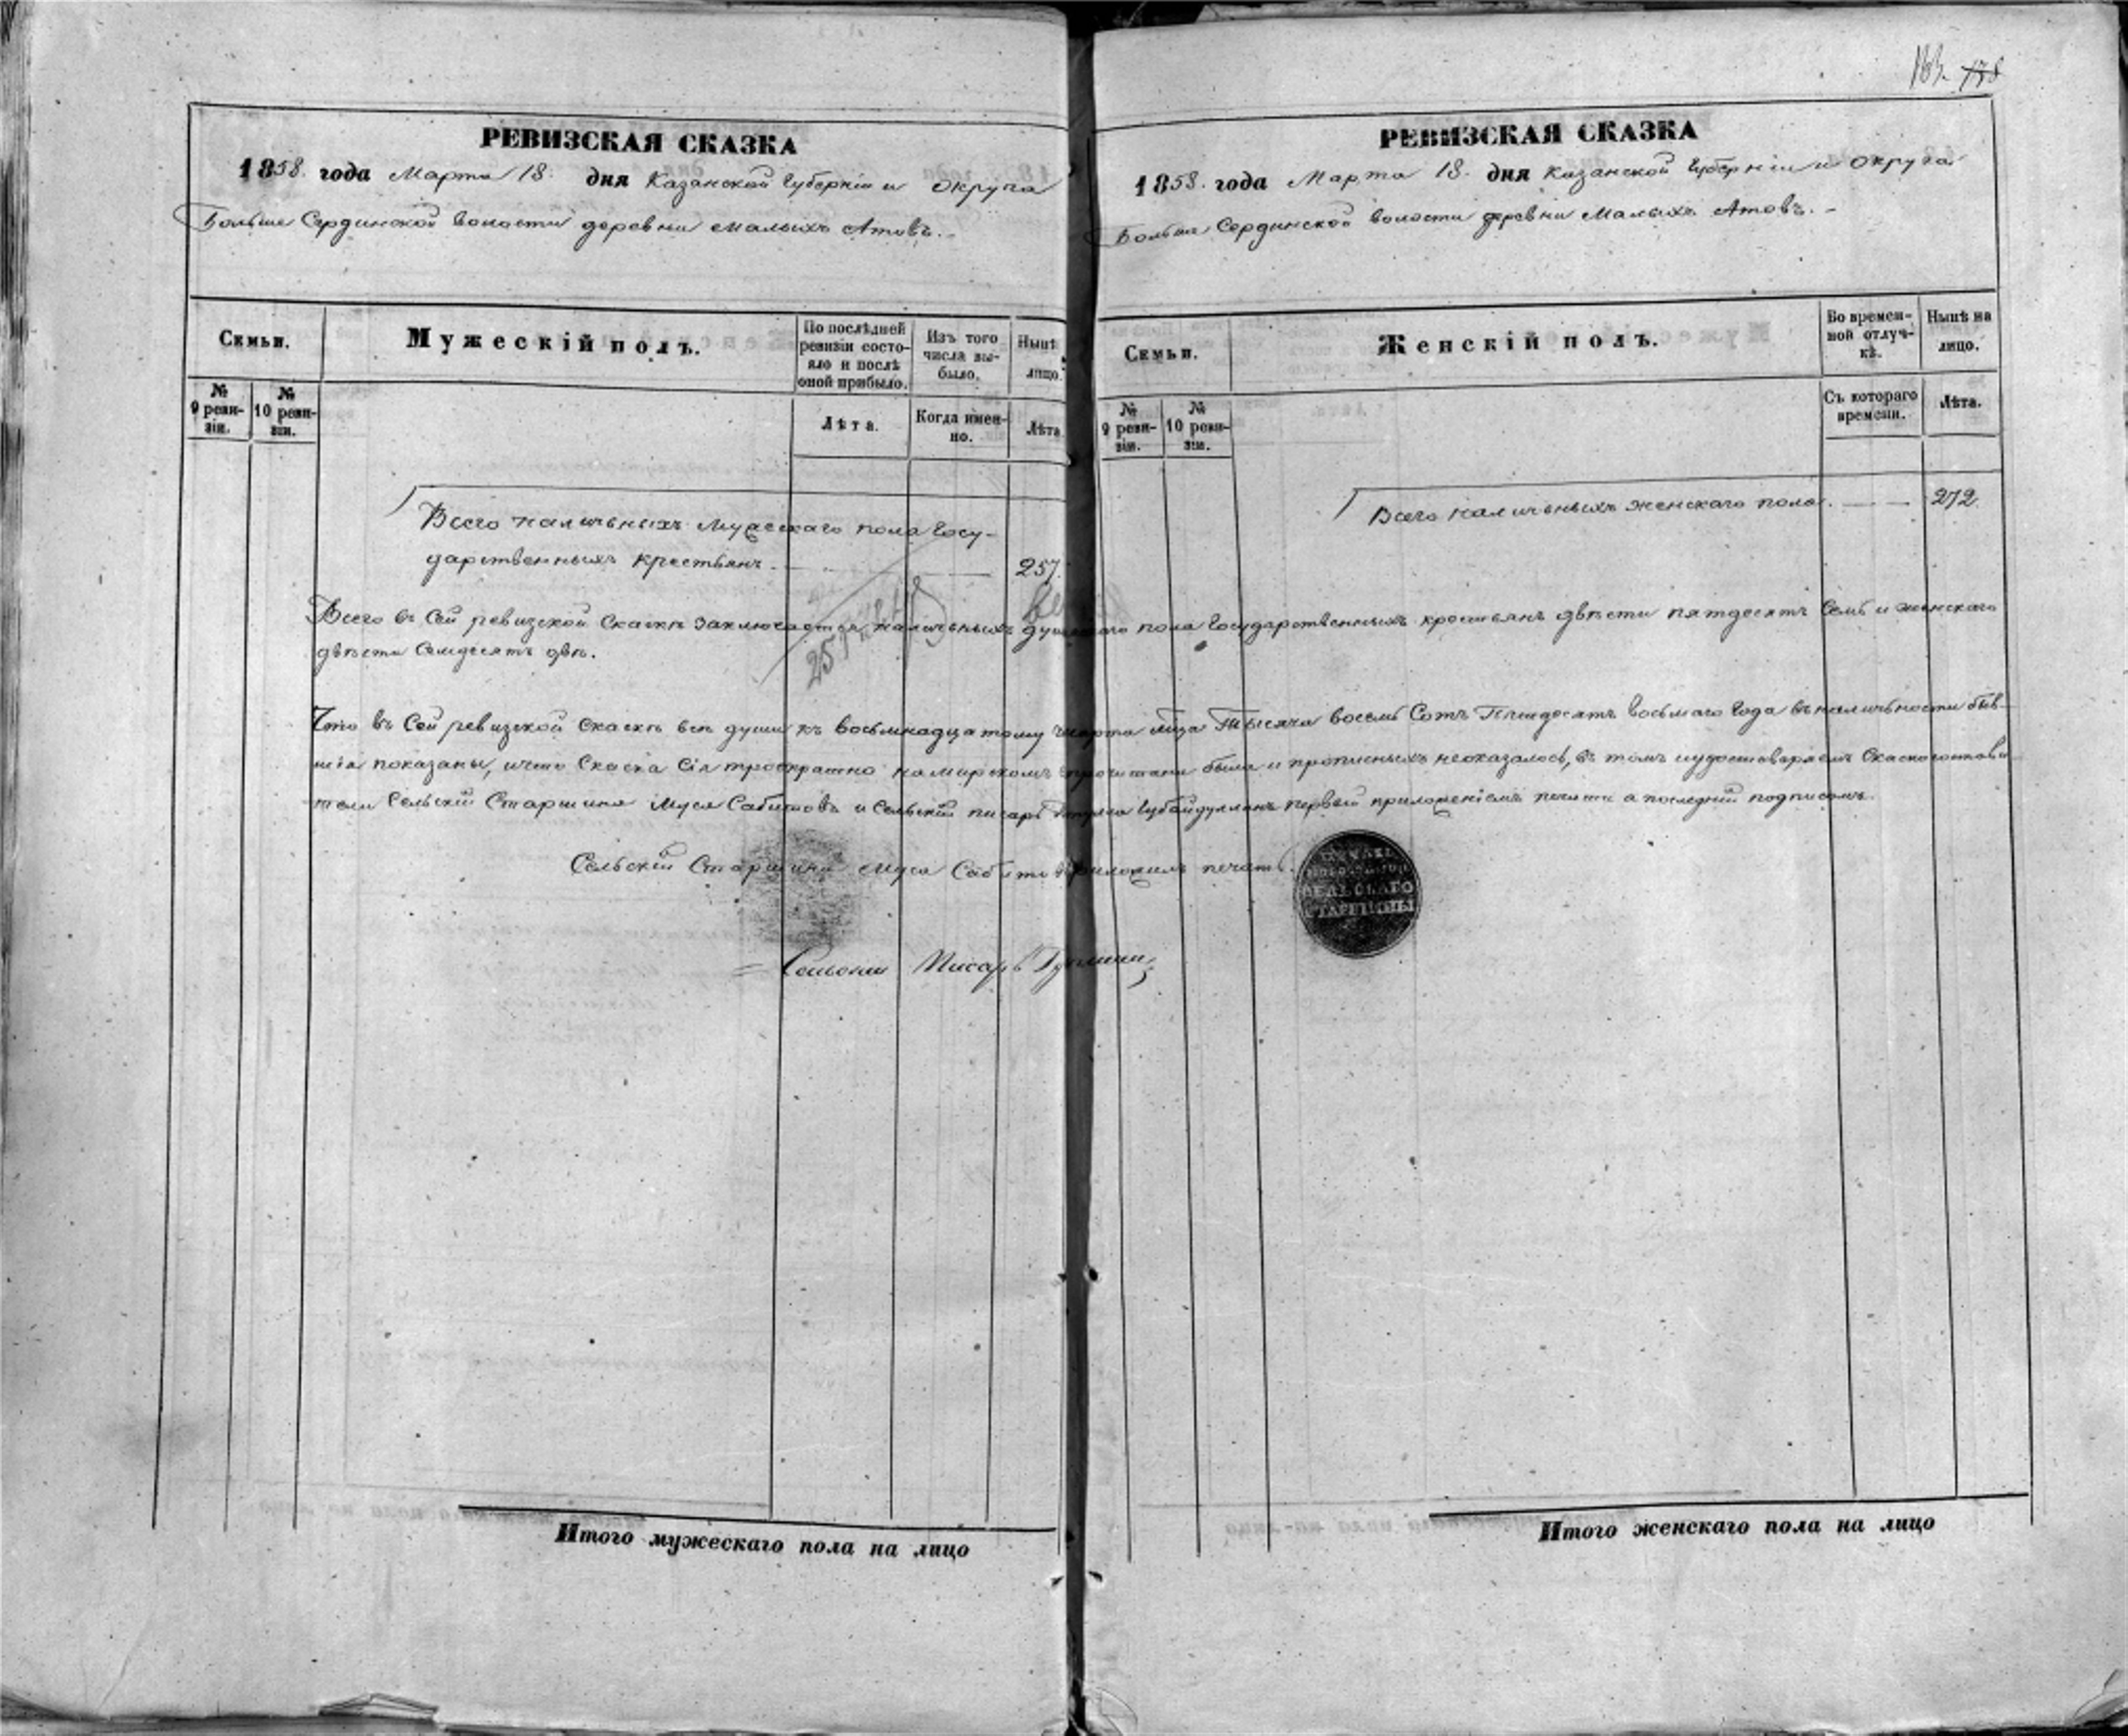 РЕВИЗСКАЯ СКАЗКА
1858. года Марта 18. дня Казанской Губерніи и округа
Больше Сердинской волости деревни Малыхъ Атовъ.
Семьи.
Мужескій полъ.
По послѣдней ревизіи состояло и послѣ оной прибыло.
Изъ того числа выбыло.
Нынѣ лицо.
№ 9 ревизіи.
№ 10 ревизіи.
Лѣта.
Когда именно.
Лѣта
Всего наличныхъ Мужескаго пола Госу-
дарственныхъ крестьянъ. 257.
РЕВИЗСКАЯ СКАЗКА
1858. года Марта 18. дня Казанской Губерніи и округа
Больше Сердинской волости деревни Малыхъ Атовъ.
Семьи.
Женскій полъ.
Во времен-
ной отлуч-
кѣ.
Нынѣ на
лицо.
№ 9 ревизіи.
№ 10 ревизіи.
Съ котораго
времени.
Лѣта.
Всего наличныхъ женскаго пола. 272.
Всего въ сей ревизской сказкѣ заключается наличныхъ пола Государственныхъ крестьянъ двѣсти пятдесятъ семь и женскаго
двѣсти семдесятъ двѣ.
257
Что въ сей ревизской сказкѣ всѣ души къ восьмнадцатому Марта Тысяча восемь сотъ пятдесятъ восьмаго года въ наличности быв-
шія показаны, и что сказка сія троекратно на мирскомъ прочитана была и прописныхъ неоказалось, въ томъ и удостоверяемъ
Сельскій Старшина Муса Сабитовъ и Сельскій писарь Губайдуллинъ первый приложеніемъ печати а последній подписомъ.
Сельскій Старшина Муса Сабитовъ приложилъ печать.
СЕЛЬСКАГО
СТАРШИНЫ
Сельски Писарь
Итого мужескаго пола на лицо
Итого женскаго пола на лицо